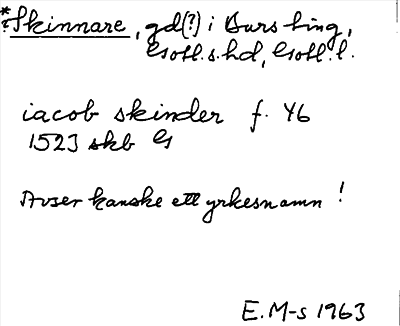 *?Skinnare, gd(?) i Burs ting,
Gotl. s. hd, Gotl. l.
iacob skinder f. 46
1523 skb G
Avser kanske ett yrkesnamn!
E.M-s 1963